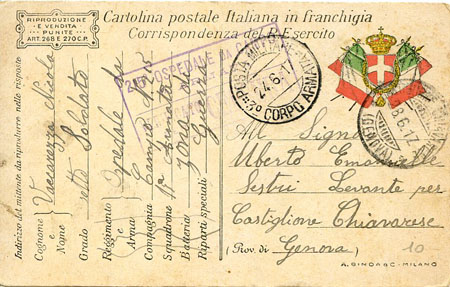 RIPRODUZIONE
E VENDITA
PUNITE
ART. 268 E 270 C.P.
Cartolina postale Italiana in franchigia
Corrispondenza del R. Esercito
POSTA MILITARE
24.6.17
CORPO ARMATA
8.6.17
OSPEDALE
Indirizzo del mittente da riprodurre nelle risposte
Cognome e Nome Nicola
Grado Soldato
Reggimento e Arma Ospedale da
Compagnia Campo
Squadrone Armata
Batteria zona di
Riparti speciali Guerra
All Signor
Uberto Emanuelle
Sestri Levante per
Castiglione Chiavarese
(Prov. di Genova)
10
MILANO